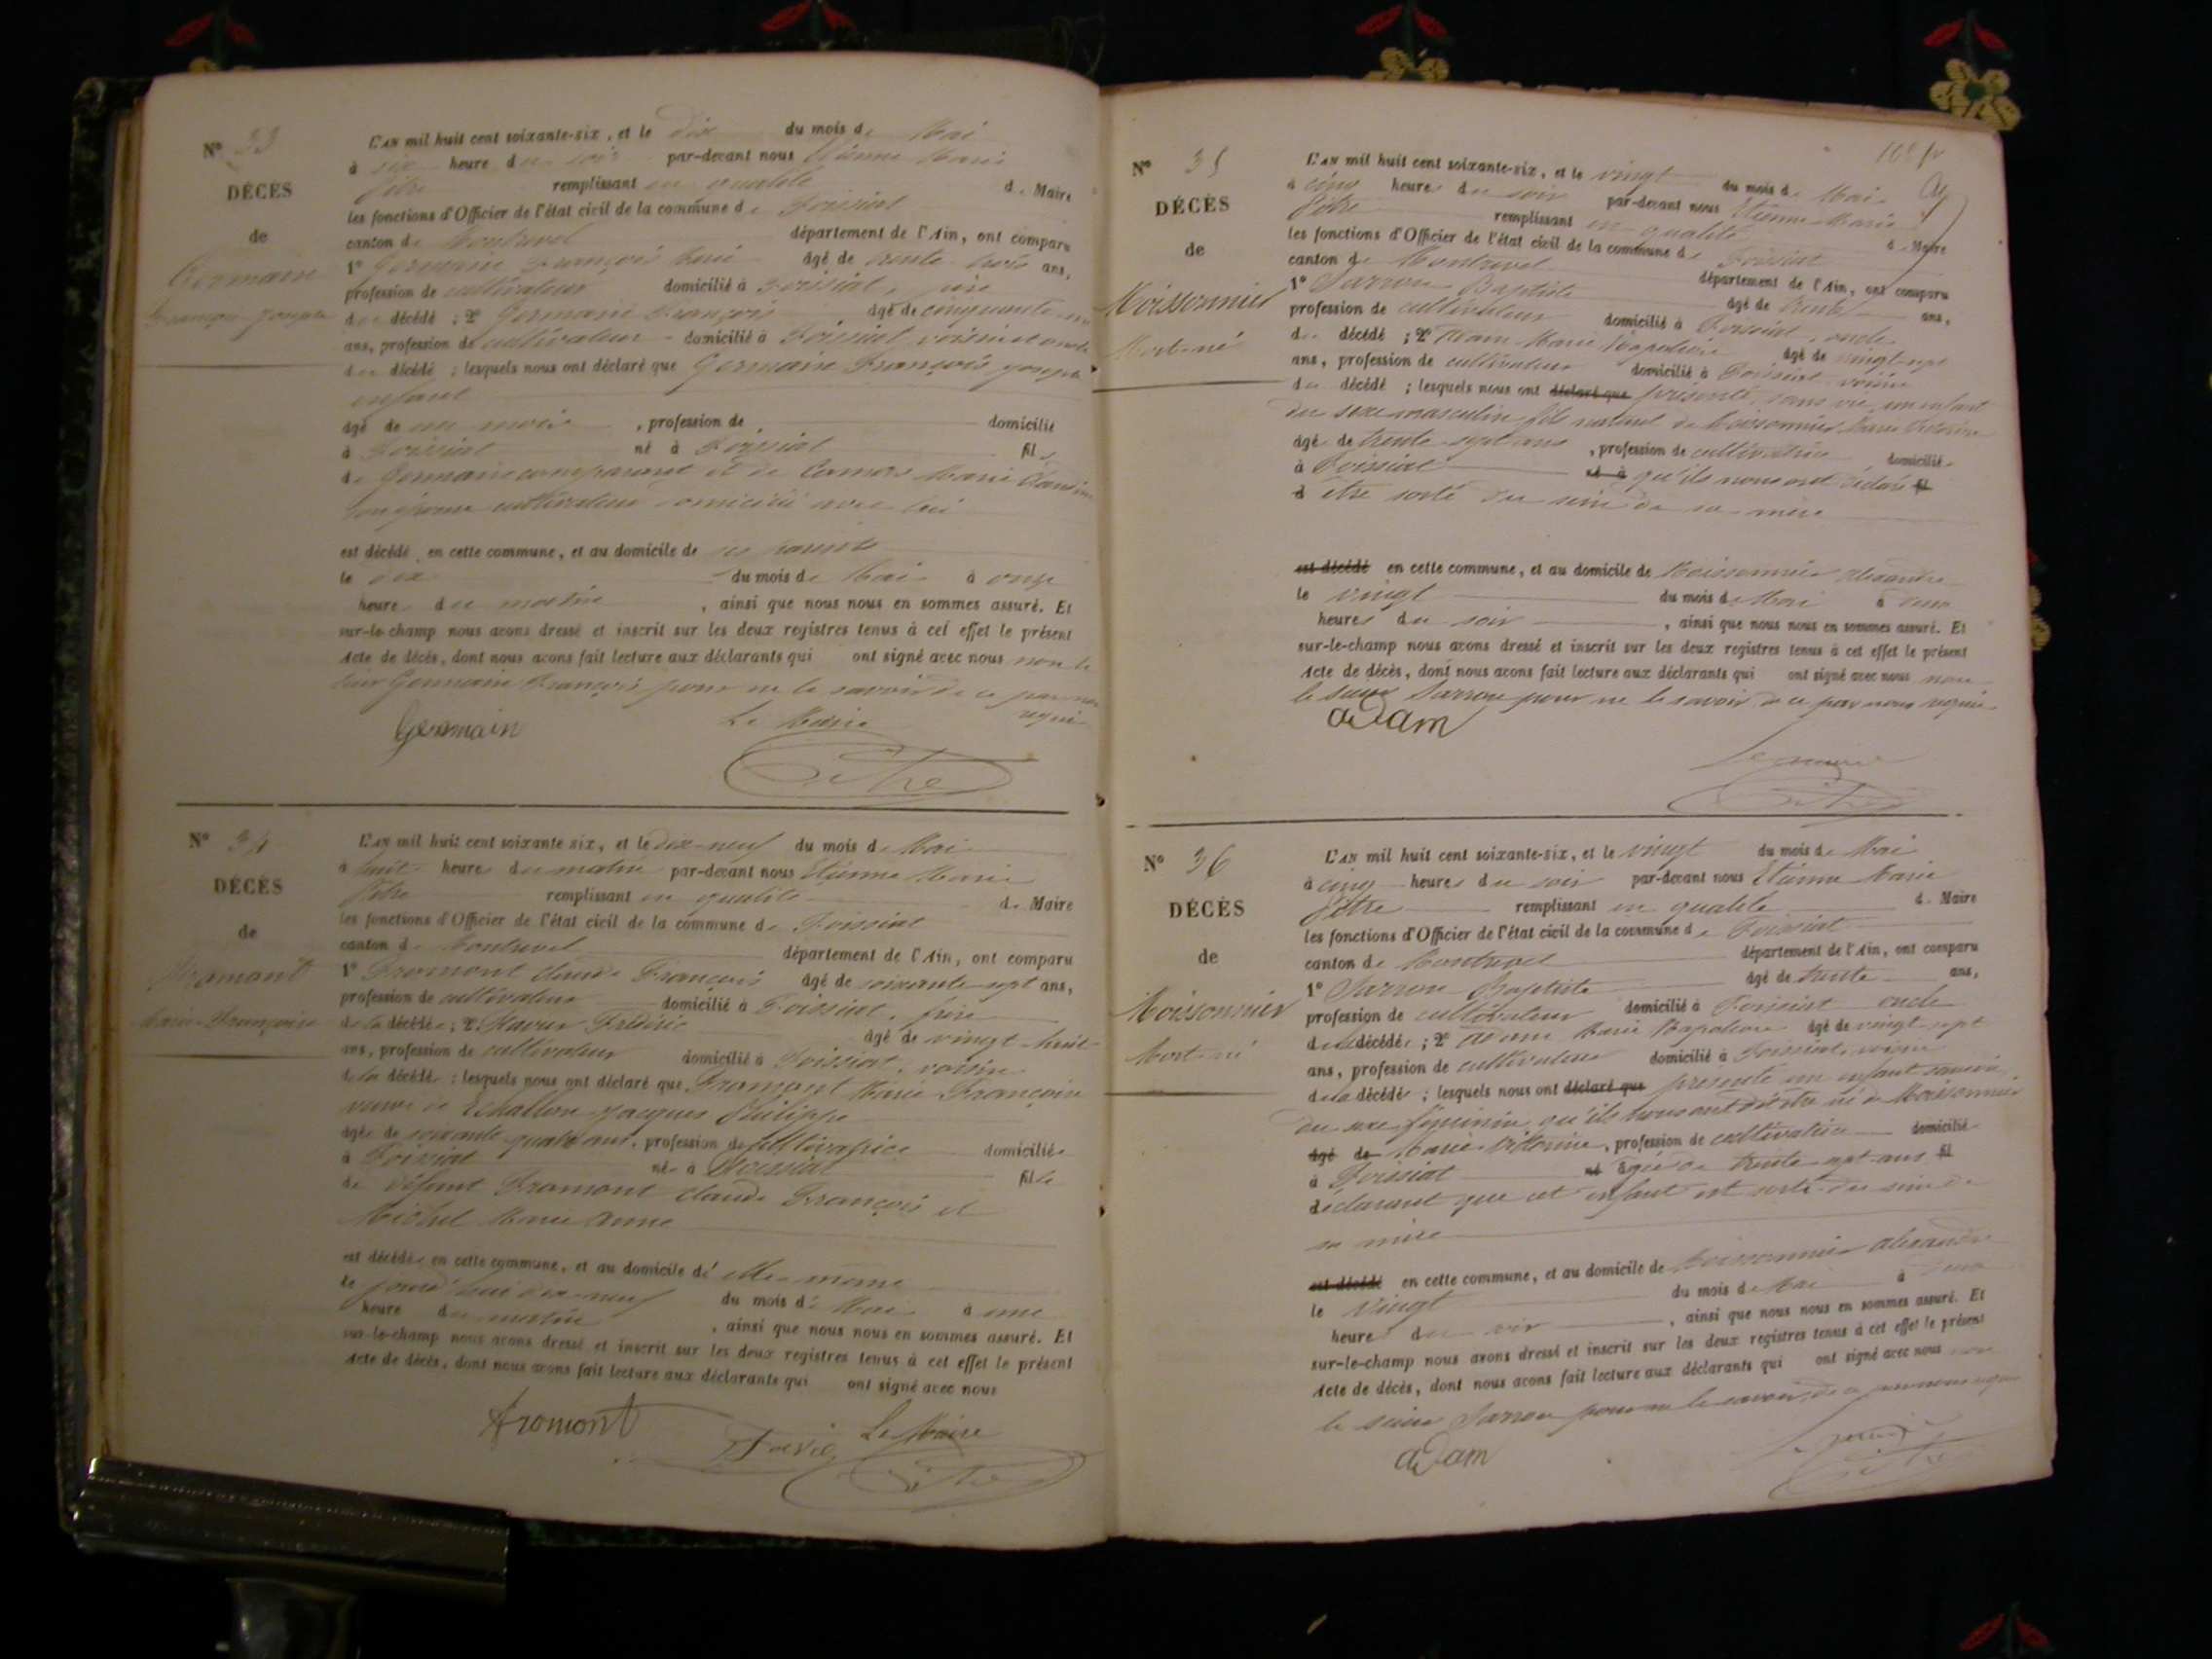 N° 33
DÉCÈS
de
Germain
François Joseph
L'AN mil huit cent soixante-six, et le dix du mois de Mai
à six heure du soir par-devant nous Etienne Marie
Pitre remplissant en qualité de Maire
les fonctions d'Officier de l'état civil de la commune de Foissiat
canton de Montrevel département de l'Ain, ont comparu
1° Germain François Marie âgé de trente trois ans,
profession de cultivateur domicilié à Foissiat, père
du décédé ; 2° Germain François âgé de cinquante
ans, profession de cultivateur domicilié à Foissiat voisin et oncle
du décédé ; lesquels nous ont déclaré que Germain François Joseph
enfant
âgé de un mois , profession de domicilié
à Foissiat né à Foissiat fils
de Germain comparant et de Marie
son épouse domicilié avec lui
est décédé en cette commune, et au domicile de ses parents
le dix du mois de Mai à onze
heure du matin , ainsi que nous nous en sommes assuré. Et
sur-le-champ nous avons dressé et inscrit sur les deux registres tenus à cet effet le présent
Acte de décès, dont nous avons fait lecture aux déclarants qui ont signé avec nous non le
sieur Germain François pour ne le savoir de ce par nous
requis
Germain Le Maire
Pitre
N° 34
DÉCÈS
de
Fromont
Marie Françoise
L'AN mil huit cent soixante six, et le dix-neuf du mois de Mai
à huit heure du matin par-devant nous Etienne Marie
Pitre remplissant en qualité de Maire
les fonctions d'Officier de l'état civil de la commune de Foissiat
canton de Montrevel département de l'Ain, ont comparu
1° Fromont Claude François âgé de soixante sept ans,
profession de cultivateur domicilié à Foissiat, frère
de la décédée ; 2° Frédéric âgé de vingt-huit
ans, profession de cultivateur domicilié à Foissiat, voisin
de la décédée ; lesquels nous ont déclaré que Fromont Marie Françoise
veuve de Echallon Jacques Philippe
âgée de soixante quatre ans, profession de cultivatrice domiciliée
à Foissiat née à Foissiat fille
de défunt Fromont Claude François et
Michel Marie Anne
est décédée en cette commune, et au domicile d'elle-même
le jourd'hui dix-neuf du mois de Mai à une
heure du matin , ainsi que nous nous en sommes assuré. Et
sur-le-champ nous avons dressé et inscrit sur les deux registres tenus à cet effet le présent
Acte de décès, dont nous avons fait lecture aux déclarants qui ont signé avec nous
Fromont Le Maire
Pitre
N° 35
DÉCÈS
de
Moissonnier
Mort-né
L'AN mil huit cent soixante-six, et le vingt du mois de Mai
à cinq heures du soir par-devant nous Etienne Marie
Pitre remplissant en qualité de Maire
les fonctions d'Officier de l'état civil de la commune de Foissiat
canton de Montrevel département de l'Ain, ont comparu
1° Sarron Baptiste âgé de trente ans,
profession de cultivateur domicilié à Foissiat, oncle
du décédé ; 2° Adam Marie Napoléon âgé de vingt sept
ans, profession de cultivateur domicilié à Foissiat voisin
du décédé ; lesquels nous ont déclaré que présenté sans vie un enfant
du sexe masculin fils naturel de Moissonnier Marie Victorine
âgée de trente-sept ans , profession de cultivatrice domiciliée
à Foissiat né à qu'ils nous ont déclaré fil
d être sorti du sein de sa mère
est décédé en cette commune, et au domicile de Moissonnier Alexandre
le vingt du mois de Mai à
heures du soir , ainsi que nous nous en sommes assuré. Et
sur-le-champ nous avons dressé et inscrit sur les deux registres tenus à cet effet le présent
Acte de décès, dont nous avons fait lecture aux déclarants qui ont signé avec nous non
le sieur Sarron pour ne le savoir de ce par nous requis
adam
Le maire
Pitre
N° 36
DÉCÈS
de
Moissonnier
Mort-né
L'AN mil huit cent soixante-six, et le vingt du mois de Mai
à cinq heures du soir par-devant nous Etienne Marie
Pitre remplissant en qualité de Maire
les fonctions d'Officier de l'état civil de la commune de Foissiat
canton de Montrevel département de l'Ain, ont comparu
1° Sarron Baptiste âgé de trente ans,
profession de cultivateur domicilié à Foissiat oncle
de la décédée ; 2° Adam Marie Napoléon âgé de vingt sept
ans, profession de cultivateur domicilié à Foissiat, voisin
de la décédée ; lesquels nous ont déclaré que présenté un enfant sans vie
du sexe féminin qu'ils nous ont dit être né de Moissonnier
âgé de Marie Victorine, profession de cultivatrice domiciliée
à Foissiat né âgée de trente sept ans fil
déclarant que cet enfant est sorti du sein de
sa mère
est décédé en cette commune, et au domicile de Moissonnier Alexandre
le vingt du mois de Mai à
heures du soir , ainsi que nous nous en sommes assuré. Et
sur-le-champ nous avons dressé et inscrit sur les deux registres tenus à cet effet le présent
Acte de décès, dont nous avons fait lecture aux déclarants qui ont signé avec nous non
le sieur Sarron pour ne le savoir de ce par nous requis
adam
Pitre